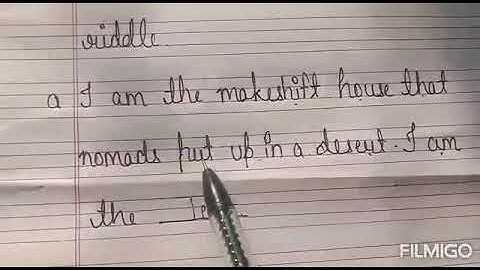 riddle.
a I am the makeshift house that
nomads put up in a desert. I am
the
FILMIGO